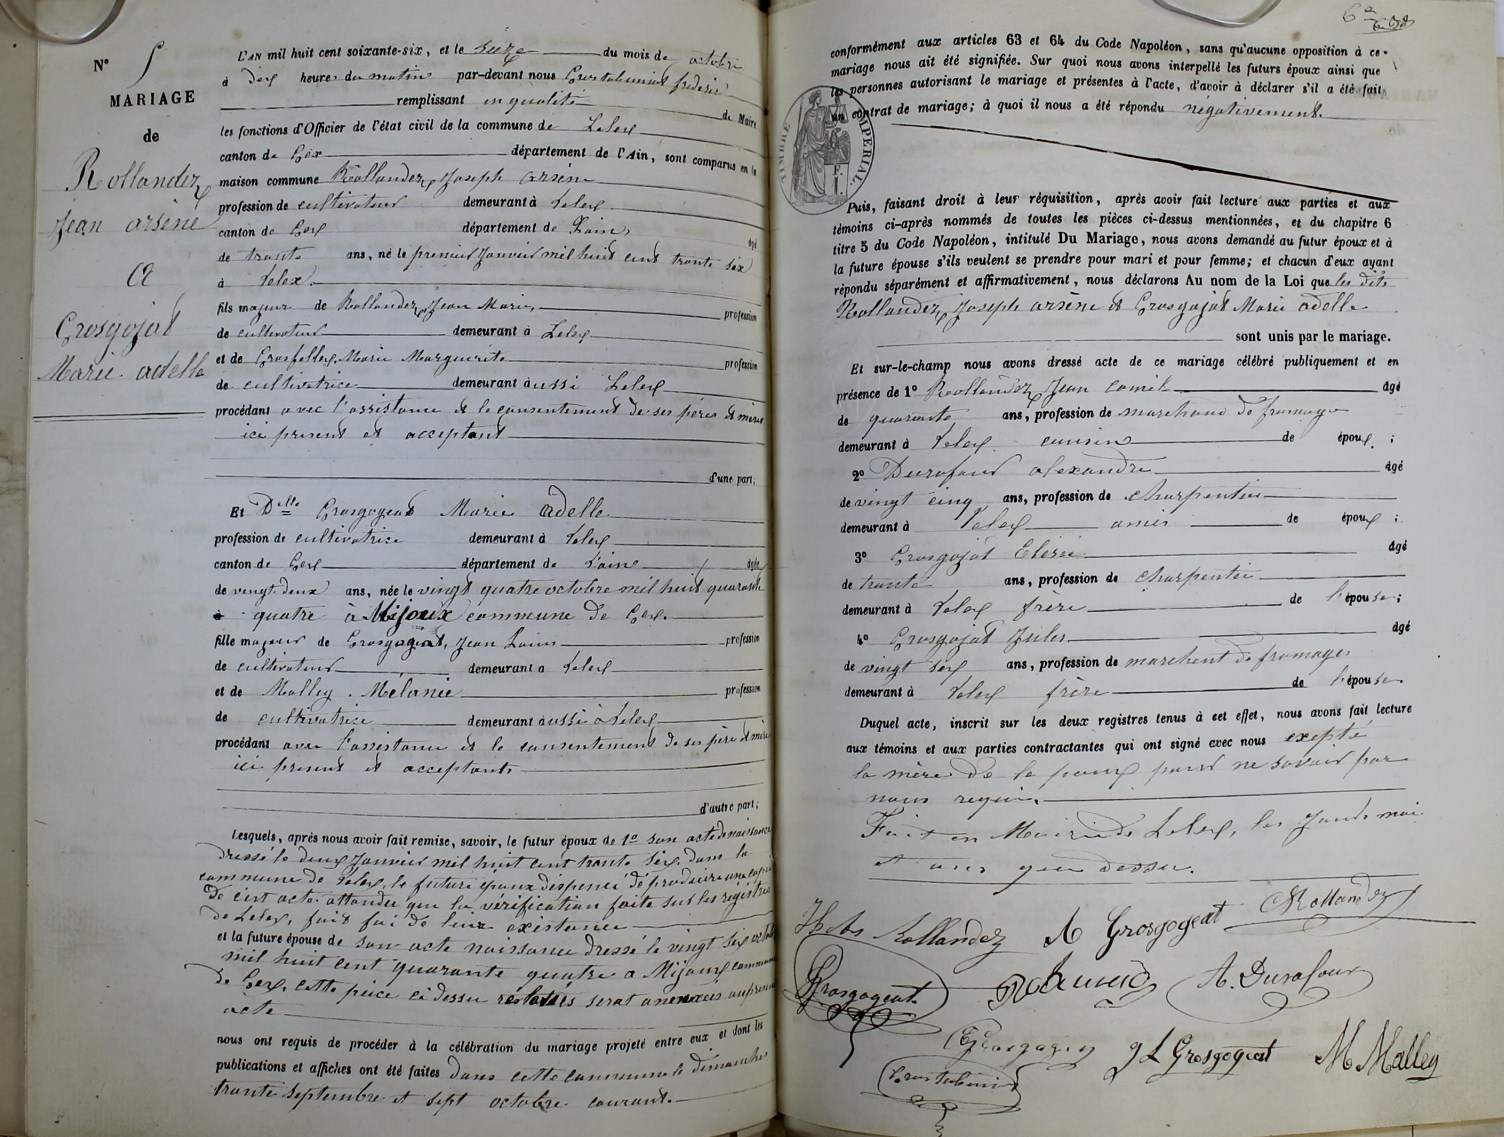 N° 5
MARIAGE
de
Rollandez
Jean arsène
et
Grosgojat
Marie adelle
L'AN mil huit cent soixante-six, et le seize du mois de octobre
à dex heures du matin par-devant nous Grostabussiat frédéric
remplissant en qualité de Maire
les fonctions d'Officier de l'état civil de la commune de Lelex
canton de Gex département de l'Ain, sont comparus en la
maison commune Rollandez, Joseph arsène
profession de cultivateur demeurant à Lelex
canton de Gex département de l'ain, âgé
de trante ans, né le premier Janvier mil huit cent trante six
à Lelex
fils majeur de Rollandez, Jean Marie, profession
de cultivateur demeurant à Lelex
et de Grosfilley, Marie Marguerite profession
de cultivatrice demeurant aussi Lelex
procédant avec l'assistance et le consentement de ses père et mère
ici présent et acceptant
d'une part,
Et Delle Grosgogeat Marie adelle
profession de cultivatrice demeurant à Lelex
canton de Gex département de l'ain âgée
de vingt-deux ans, née le vingt quatre octobre mil huit quarante
quatre à Mijoux commune de Gex.
fille majeur de Grosgogeat, Jean Louis profession
de cultivateur demeurant à Lelex
et de Malley. Mélanie profession
de cultivatrice demeurant aussi à Lelex
procédant avec l'assistance et le consentement de ses père et mère
ici présent et acceptants
d'autre part;
Lesquels, après nous avoir fait remise, savoir, le futur époux de 1° son acte de naissance
dressé le deux Janvier mil huit cent trante six dans la
commune de Lelex, le future époux dispensé de produire une copie
de cest acte attandu que la vérification faite sur les registres
de Lelex, fait foi de leur existence
et la future épouse de son acte naissance dressé le vingt six octobre
mil huit cent quarante quatre a Mijoux commune
de Gex, cette pièce ci dessu relatés serat annexées au présent
acte
nous ont requis de procéder à la célébration du mariage projeté entre eux et dont les
publications et affiches ont été faites dans cette commune le dimanches
trante septembre et sept octobre courant.
conformément aux articles 63 et 64 du Code Napoléon, sans qu'aucune opposition à ce
mariage nous ait été signifiée. Sur quoi nous avons interpellé les futurs époux ainsi que
les personnes autorisant le mariage et présentes à l'acte, d'avoir à déclarer s'il a été fait
un contrat de mariage; à quoi il nous a été répondu négativement.
TIMBRE IMPERIAL.
Puis, faisant droit à leur réquisition, après avoir fait lecture aux parties et aux
témoins ci-après nommés de toutes les pièces ci-dessus mentionnées, et du chapitre 6
titre 5 du Code Napoléon, intitulé Du Mariage, nous avons demandé au futur époux et à
la future épouse s'ils veulent se prendre pour mari et pour femme; et chacun d'eux ayant
répondu séparément et affirmativement, nous déclarons Au nom de la Loi que les dits
Rollandez, Joseph arsène et Grosgojat Marie adelle
sont unis par le mariage.
Et sur-le-champ nous avons dressé acte de ce mariage célébré publiquement et en
présence de 1° Rollandez, Jean camile âgé
de quarante ans, profession de marchand de fromage
demeurant à Lelex cousin de époux;
2° Durafour alexandre âgé
de vingt cinq ans, profession de charpentier
demeurant à Lelex amis de époux;
3° Grosgojat Elisée âgé
de trante ans, profession de charpentier
demeurant à Lelex frère de l'épouse;
4° Grosgojat Jules âgé
de vingt six ans, profession de marchent de fromages
demeurant à Lelex frère de l'épouse
Duquel acte, inscrit sur les deux registres tenus à cet effet, nous avons fait lecture
aux témoins et aux parties contractantes qui ont signé avec nous exepté
la mère de le poux pour ne savoir par
nous requise.
Fait en Mairie de Lelex, les Jours moi
et ans que dessu.
Rollandez A Grosgogeat Rollandez
Grosgogeat A. Durafour
J L Grosgogeat M Malley